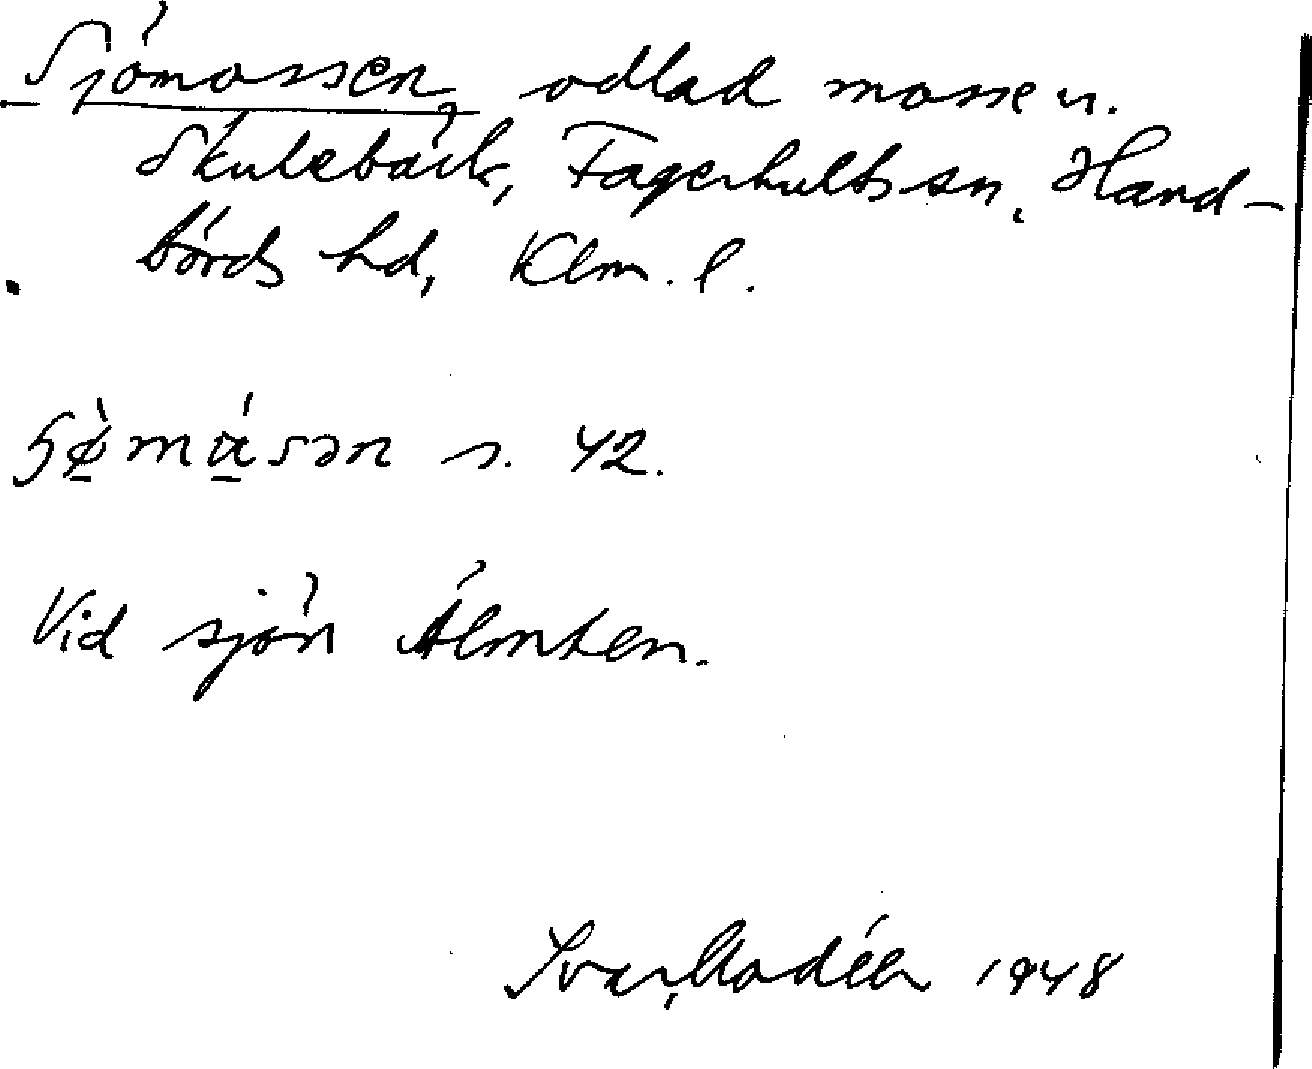 Sjömossen, odlad mosse u.
Skulebäck, Fagerhults sn, Hand-
börds hd, Klm. l.
s. 42.
Vid sjön Älmten.
Ivar Modéer 1948